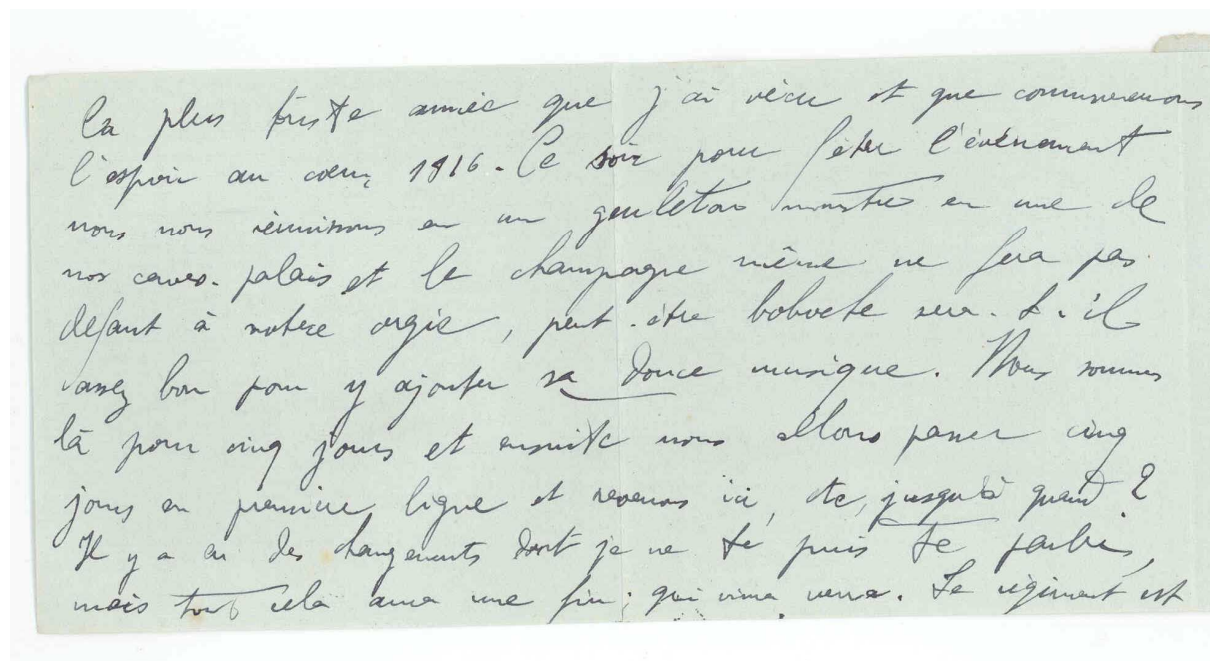 la plus triste année que j'ai vécu et que commencerons
l'espoir au cœur, 1916. Ce soir pour fêter l'événement
nous nous réunissons en un gueuleton monstre en une de
nos caves-palais et le champagne même ne fera pas
défaut à notre orgie, peut-être boboche sera-t-il
assez bon pour y ajouter sa douce musique. Nous sommes
là pour cinq jours et ensuite nous allons passer cinq
jours en première ligne et revenons ici, etc, jusqu'à quand ?
Il y a eu des changements dont je ne te puis te parler,
mais tout cela aura une fin ; qui vivra verra. Le régiment est